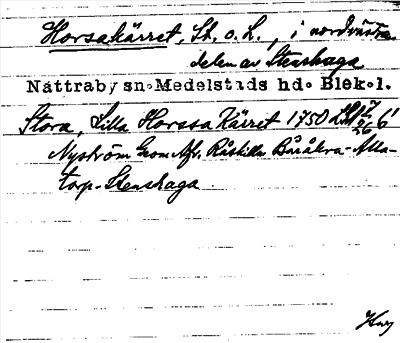 Horsakärret, St. o. L., i nordvästra
delen av Stenshaga
Nättraby sn. Medelstads hd. Blek.l.
Stora, Lilla Horssa Kärret 1750 LMV
Nyström Geom Afr. Råskilln Båråkra-Alla-
torp-Stenshaga